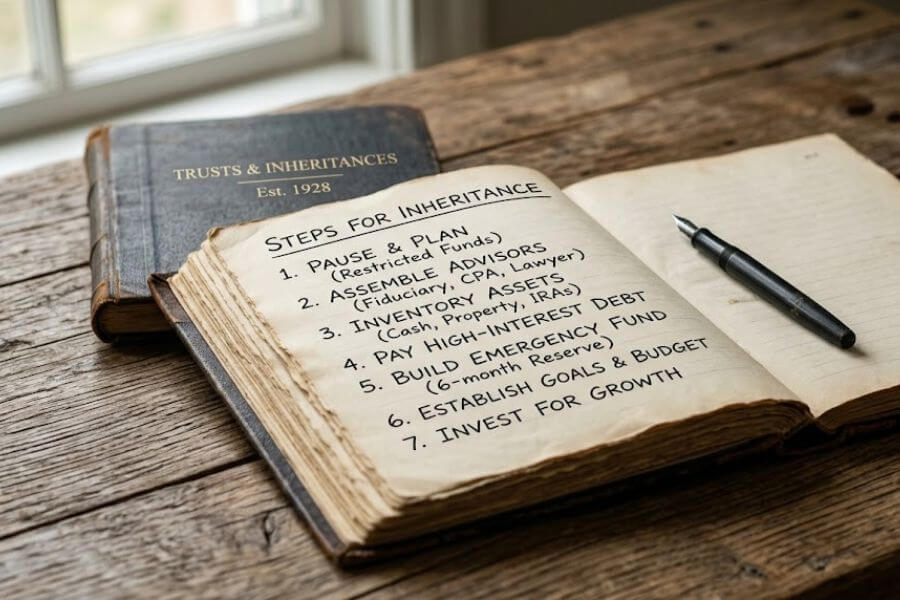 TRUSTS & INHERITANCES
Est. 1928
STEPS FOR INHERITANCE
1. PAUSE & PLAN
(Restricted Funds)
2. ASSEMBLE ADVISORS
(Fiduciary, CPA, Lawyer)
3. INVENTORY ASSETS
(Cash, Property, IRAs)
4. PAY HIGH-INTEREST DEBT
5. BUILD EMERGENCY FUND
(6-month Reserve)
6. ESTABLISH GOALS & BUDGET
7. INVEST FOR GROWTH